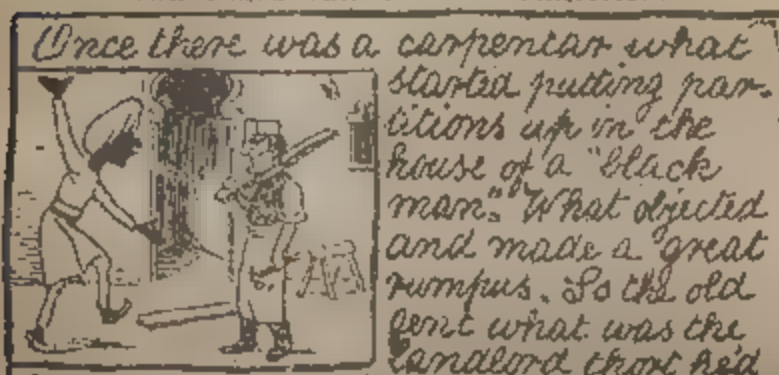 Once there was a carpentar what
started putting par-
titions up in the
house of a "black
man." What objected
and made a great
rumpus. So the old
gent what was the
landlord thort he'd